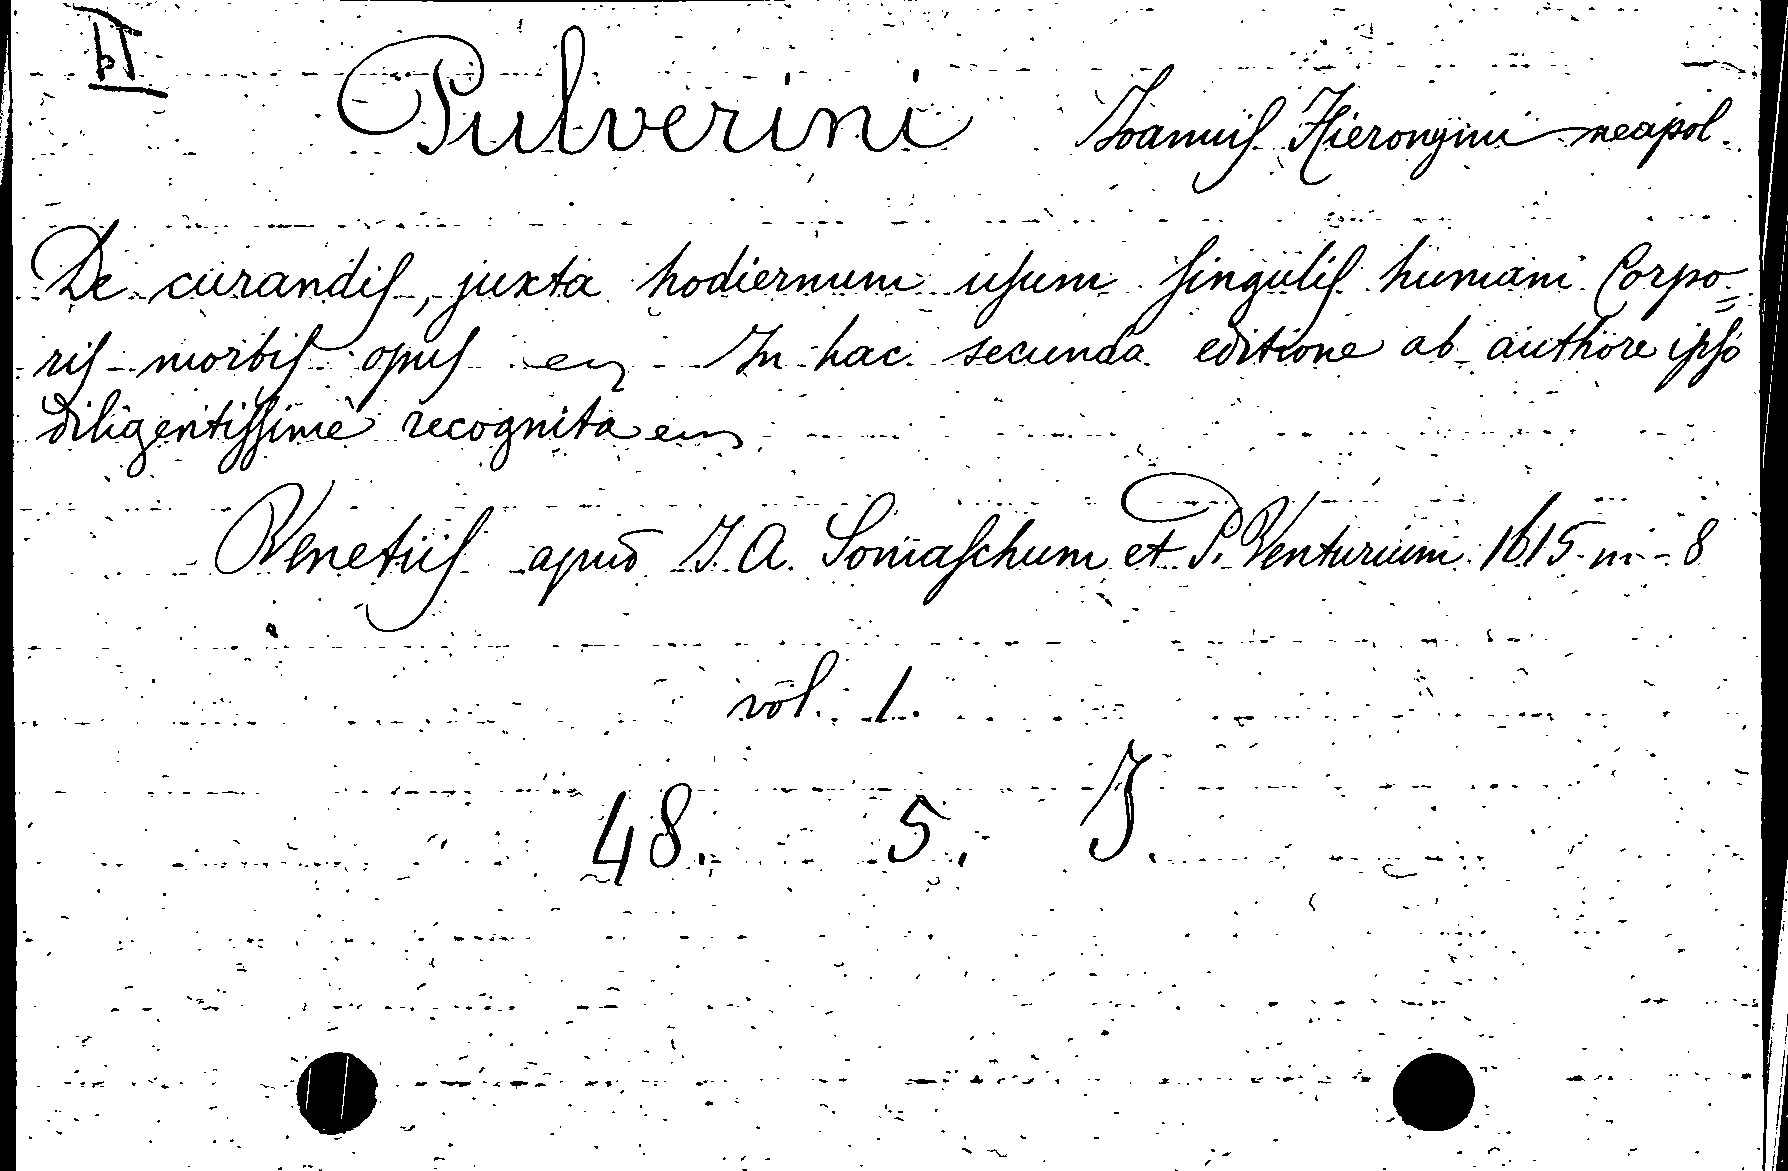 Pulverini Joannis Hieronymi neapol.
De curandis, juxta hodiernum usum singulis humani Corpo=
ris morbis opus ec In hac secunda editione ab authore ipso
diligentissimè recognita ec
Venetiis apud J. A. Somaschum et P. Venturium 1615 in-8
vol. 1.
48. 5. J.